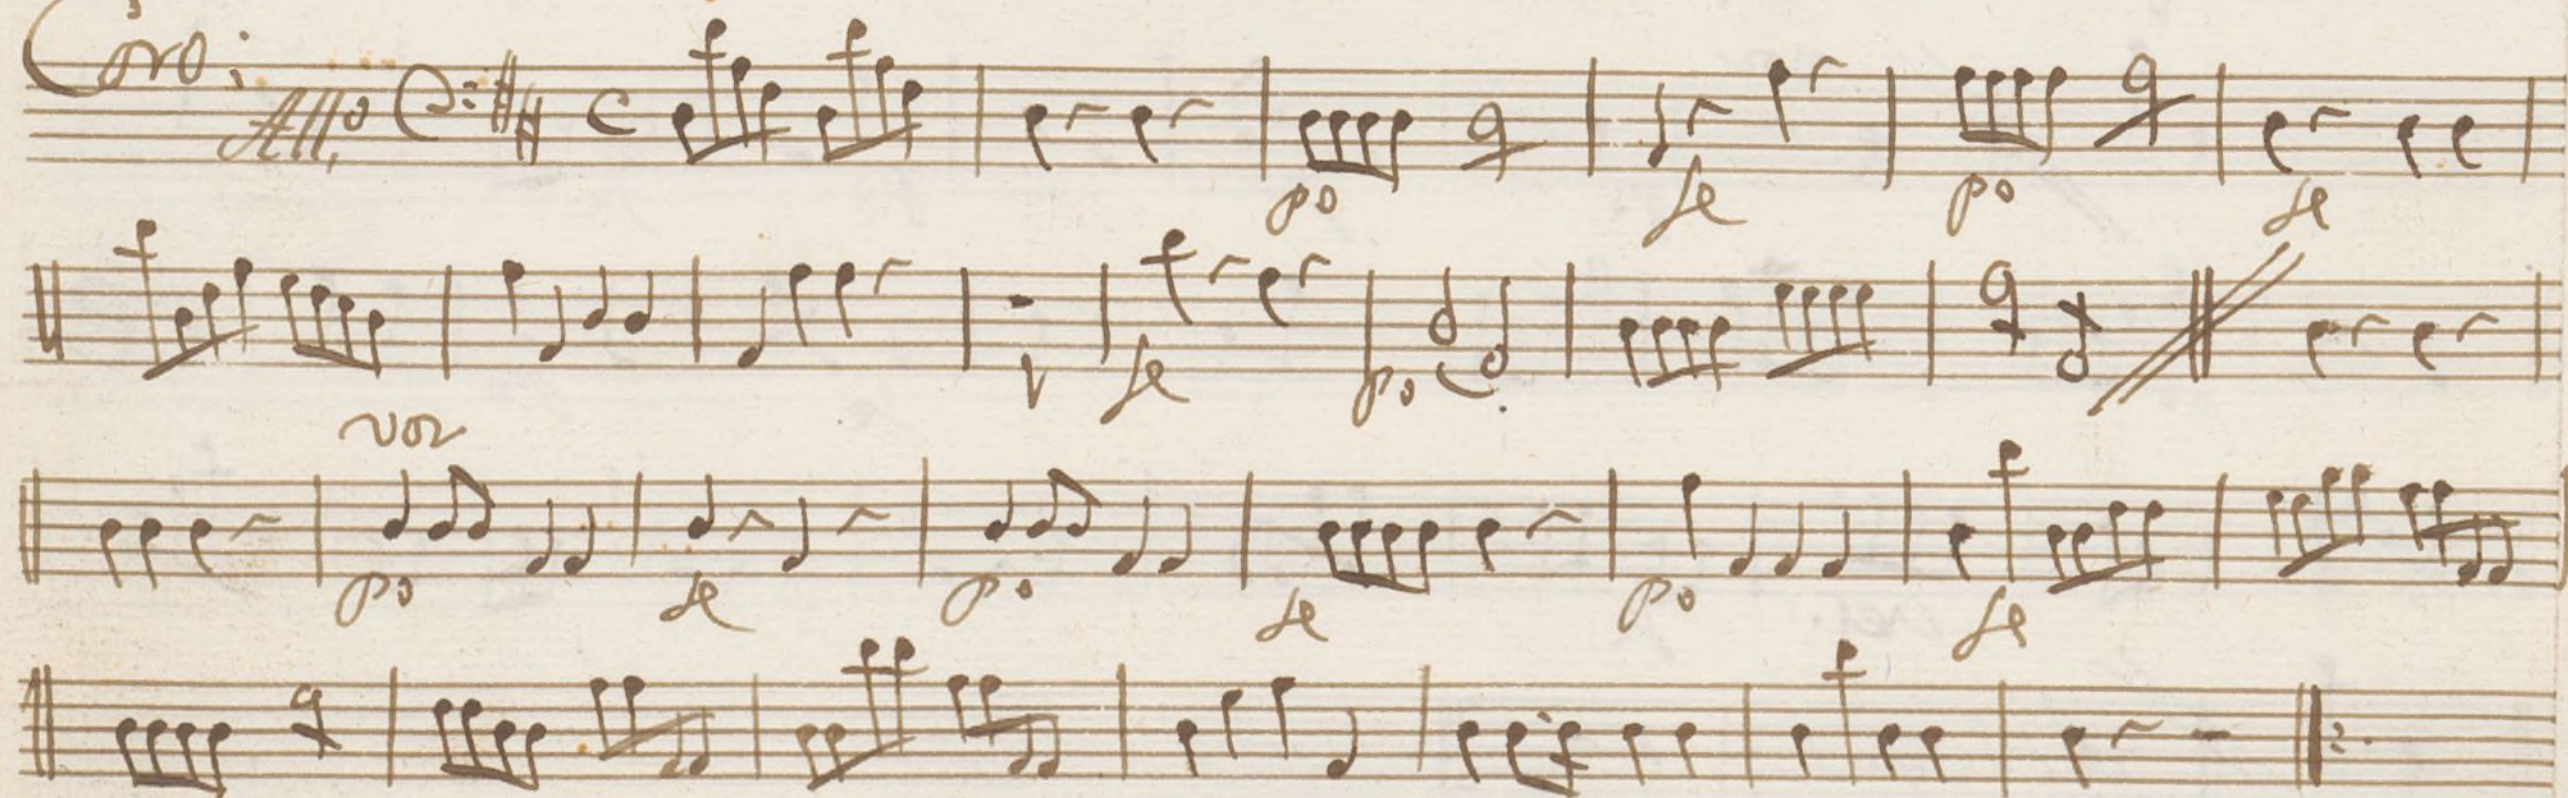 Coro:
All:o C
po fe po fe
fe po
vor
po fe po fe po fe